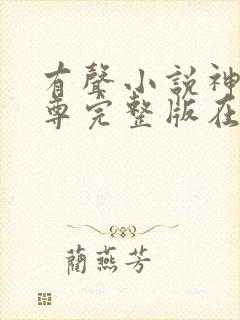 有聲小說神
尊完整版在
藺燕芳